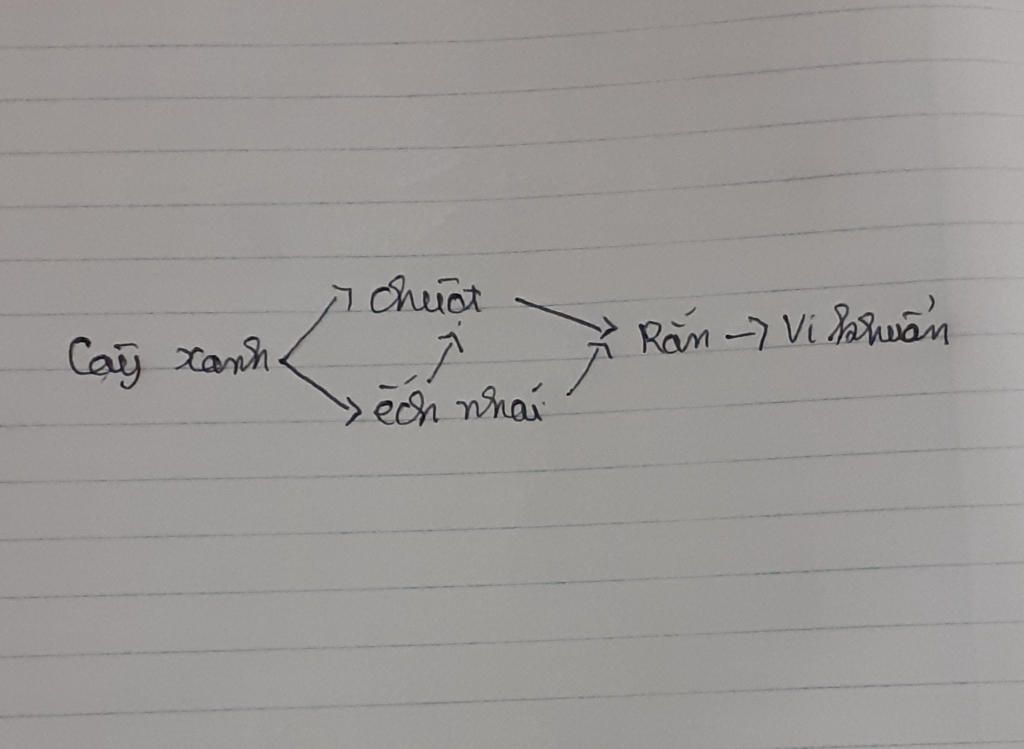 chuột
Cây xanh Rắn → Vi khuẩn
ếch nhái